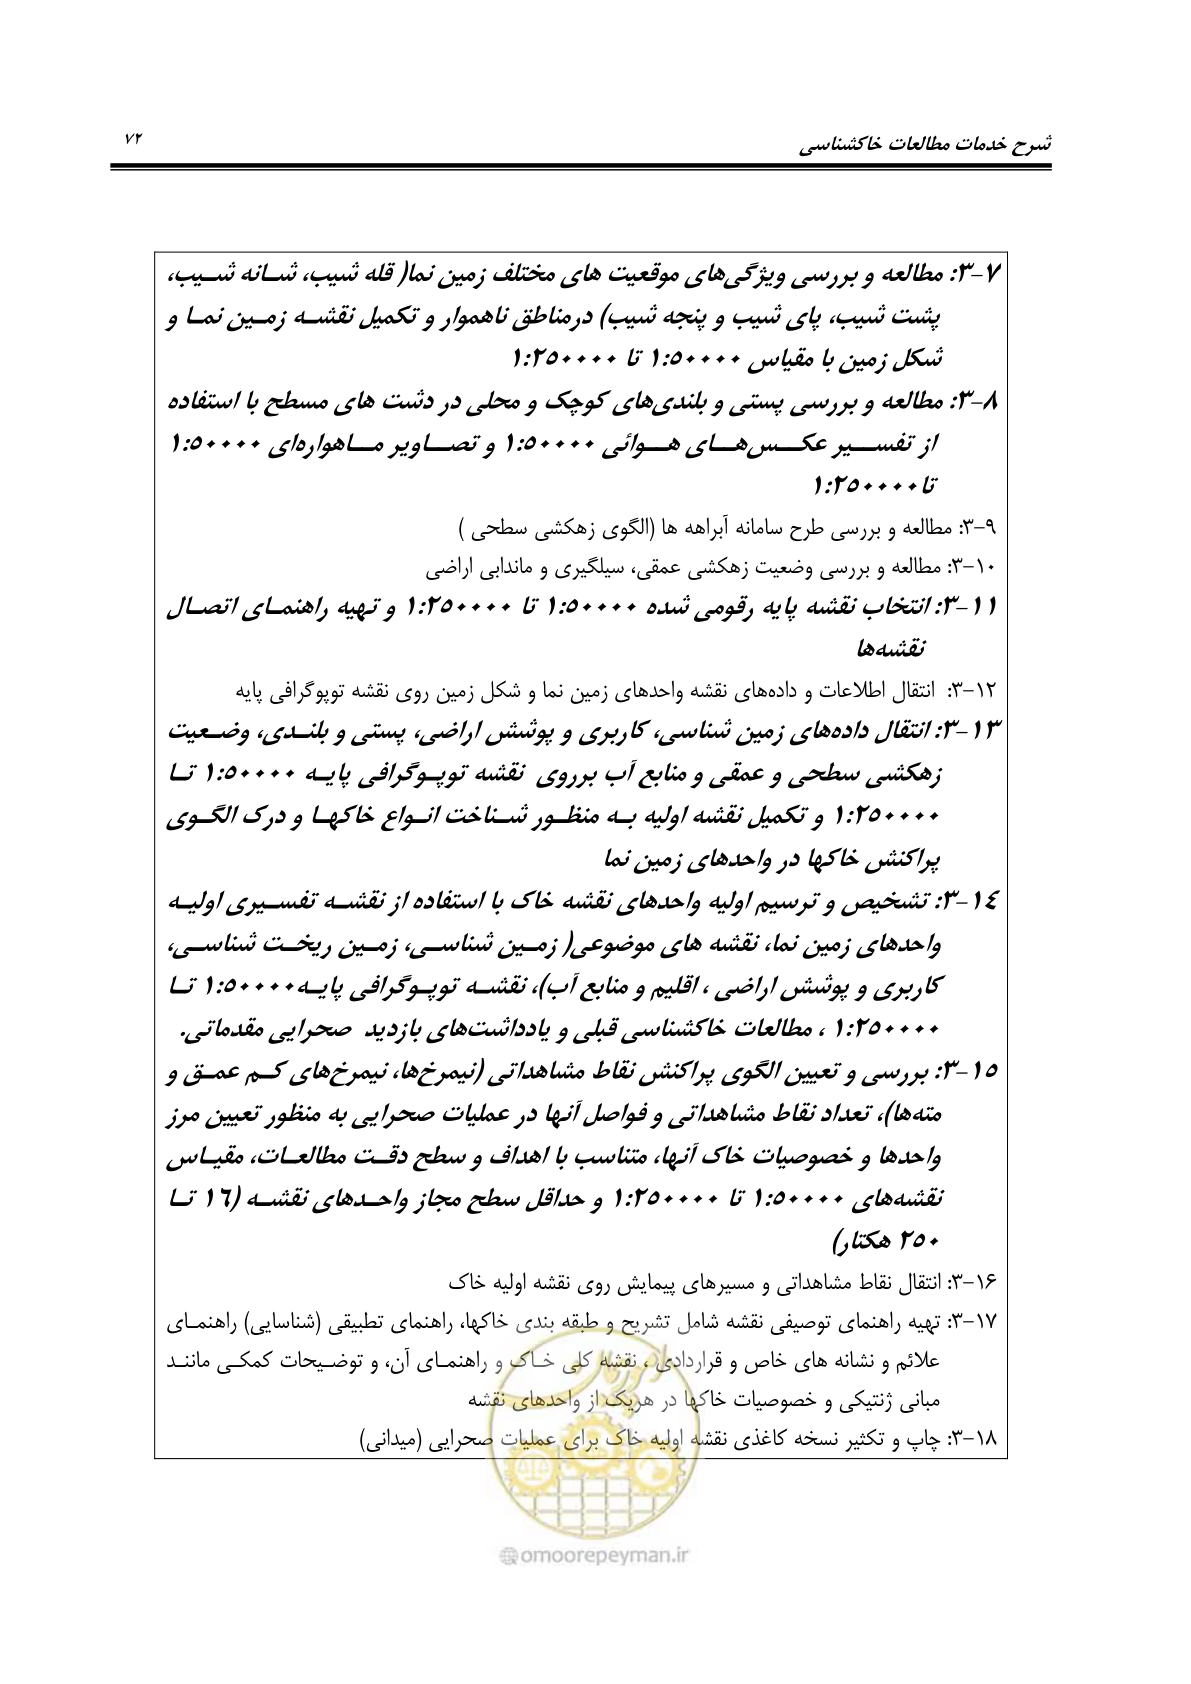 شرح خدمات مطالعات خاکشناسی ۷۲
۳-۷: مطالعه و بررسی ویژگی‌های موقعیت های مختلف زمین نما( قله شیب، شانه شیب،
پشت شیب، پای شیب و پنجه شیب) درمناطق ناهموار و تکمیل نقشه زمین نما و
شکل زمین با مقیاس ۱:۵۰۰۰۰ تا ۱:۲۵۰۰۰۰
۳-۸: مطالعه و بررسی پستی و بلندی‌های کوچک و محلی در دشت های مسطح با استفاده
از تفسیر عکس‌های هوائی ۱:۵۰۰۰۰ و تصاویر ماهواره‌ای ۱:۵۰۰۰۰
تا ۱:۲۵۰۰۰۰
۳-۹: مطالعه و بررسی طرح سامانه آبراهه ها (الگوی زهکشی سطحی )
۳-۱۰: مطالعه و بررسی وضعیت زهکشی عمقی، سیلگیری و ماندابی اراضی
۳-۱۱: انتخاب نقشه پایه رقومی شده ۱:۵۰۰۰۰ تا ۱:۲۵۰۰۰۰ و تهیه راهنمای اتصال
نقشه‌ها
۳-۱۲: انتقال اطلاعات و داده‌های نقشه واحدهای زمین نما و شکل زمین روی نقشه توپوگرافی پایه
۳-۱۳: انتقال داده‌های زمین شناسی، کاربری و پوشش اراضی، پستی و بلندی، وضعیت
زهکشی سطحی و عمقی و منابع آب برروی نقشه توپوگرافی پایه ۱:۵۰۰۰۰ تا
۱:۲۵۰۰۰۰ و تکمیل نقشه اولیه به منظور شناخت انواع خاکها و درک الگوی
پراکنش خاکها در واحدهای زمین نما
۳-۱۴: تشخیص و ترسیم اولیه واحدهای نقشه خاک با استفاده از نقشه تفسیری اولیه
واحدهای زمین نما، نقشه های موضوعی( زمین شناسی، زمین ریخت شناسی،
کاربری و پوشش اراضی ، اقلیم و منابع آب)، نقشه توپوگرافی پایه۱:۵۰۰۰۰ تا
۱:۲۵۰۰۰۰ ، مطالعات خاکشناسی قبلی و یادداشت‌های بازدید صحرایی مقدماتی.
۳-۱۵: بررسی و تعیین الگوی پراکنش نقاط مشاهداتی (نیمرخ‌ها، نیمرخ‌های کم عمق و
مته‌ها)، تعداد نقاط مشاهداتی و فواصل آنها در عملیات صحرایی به منظور تعیین مرز
واحدها و خصوصیات خاک آنها، متناسب با اهداف و سطح دقت مطالعات، مقیاس
نقشه‌های ۱:۵۰۰۰۰ تا ۱:۲۵۰۰۰۰ و حداقل سطح مجاز واحدهای نقشه (۱۶ تا
۲۵۰ هکتار)
۳-۱۶: انتقال نقاط مشاهداتی و مسیرهای پیمایش روی نقشه اولیه خاک
۳-۱۷: تهیه راهنمای توصیفی نقشه شامل تشریح و طبقه بندی خاکها، راهنمای تطبیقی (شناسایی) راهنمای
علائم و نشانه های خاص و قراردادی ، نقشه کلی خاک و راهنمای آن، و توضیحات کمکی مانند
مبانی ژنتیکی و خصوصیات خاکها در هریک از واحدهای نقشه
۳-۱۸: چاپ و تکثیر نسخه کاغذی نقشه اولیه خاک برای عملیات صحرایی (میدانی)
@omoorepeyman.ir